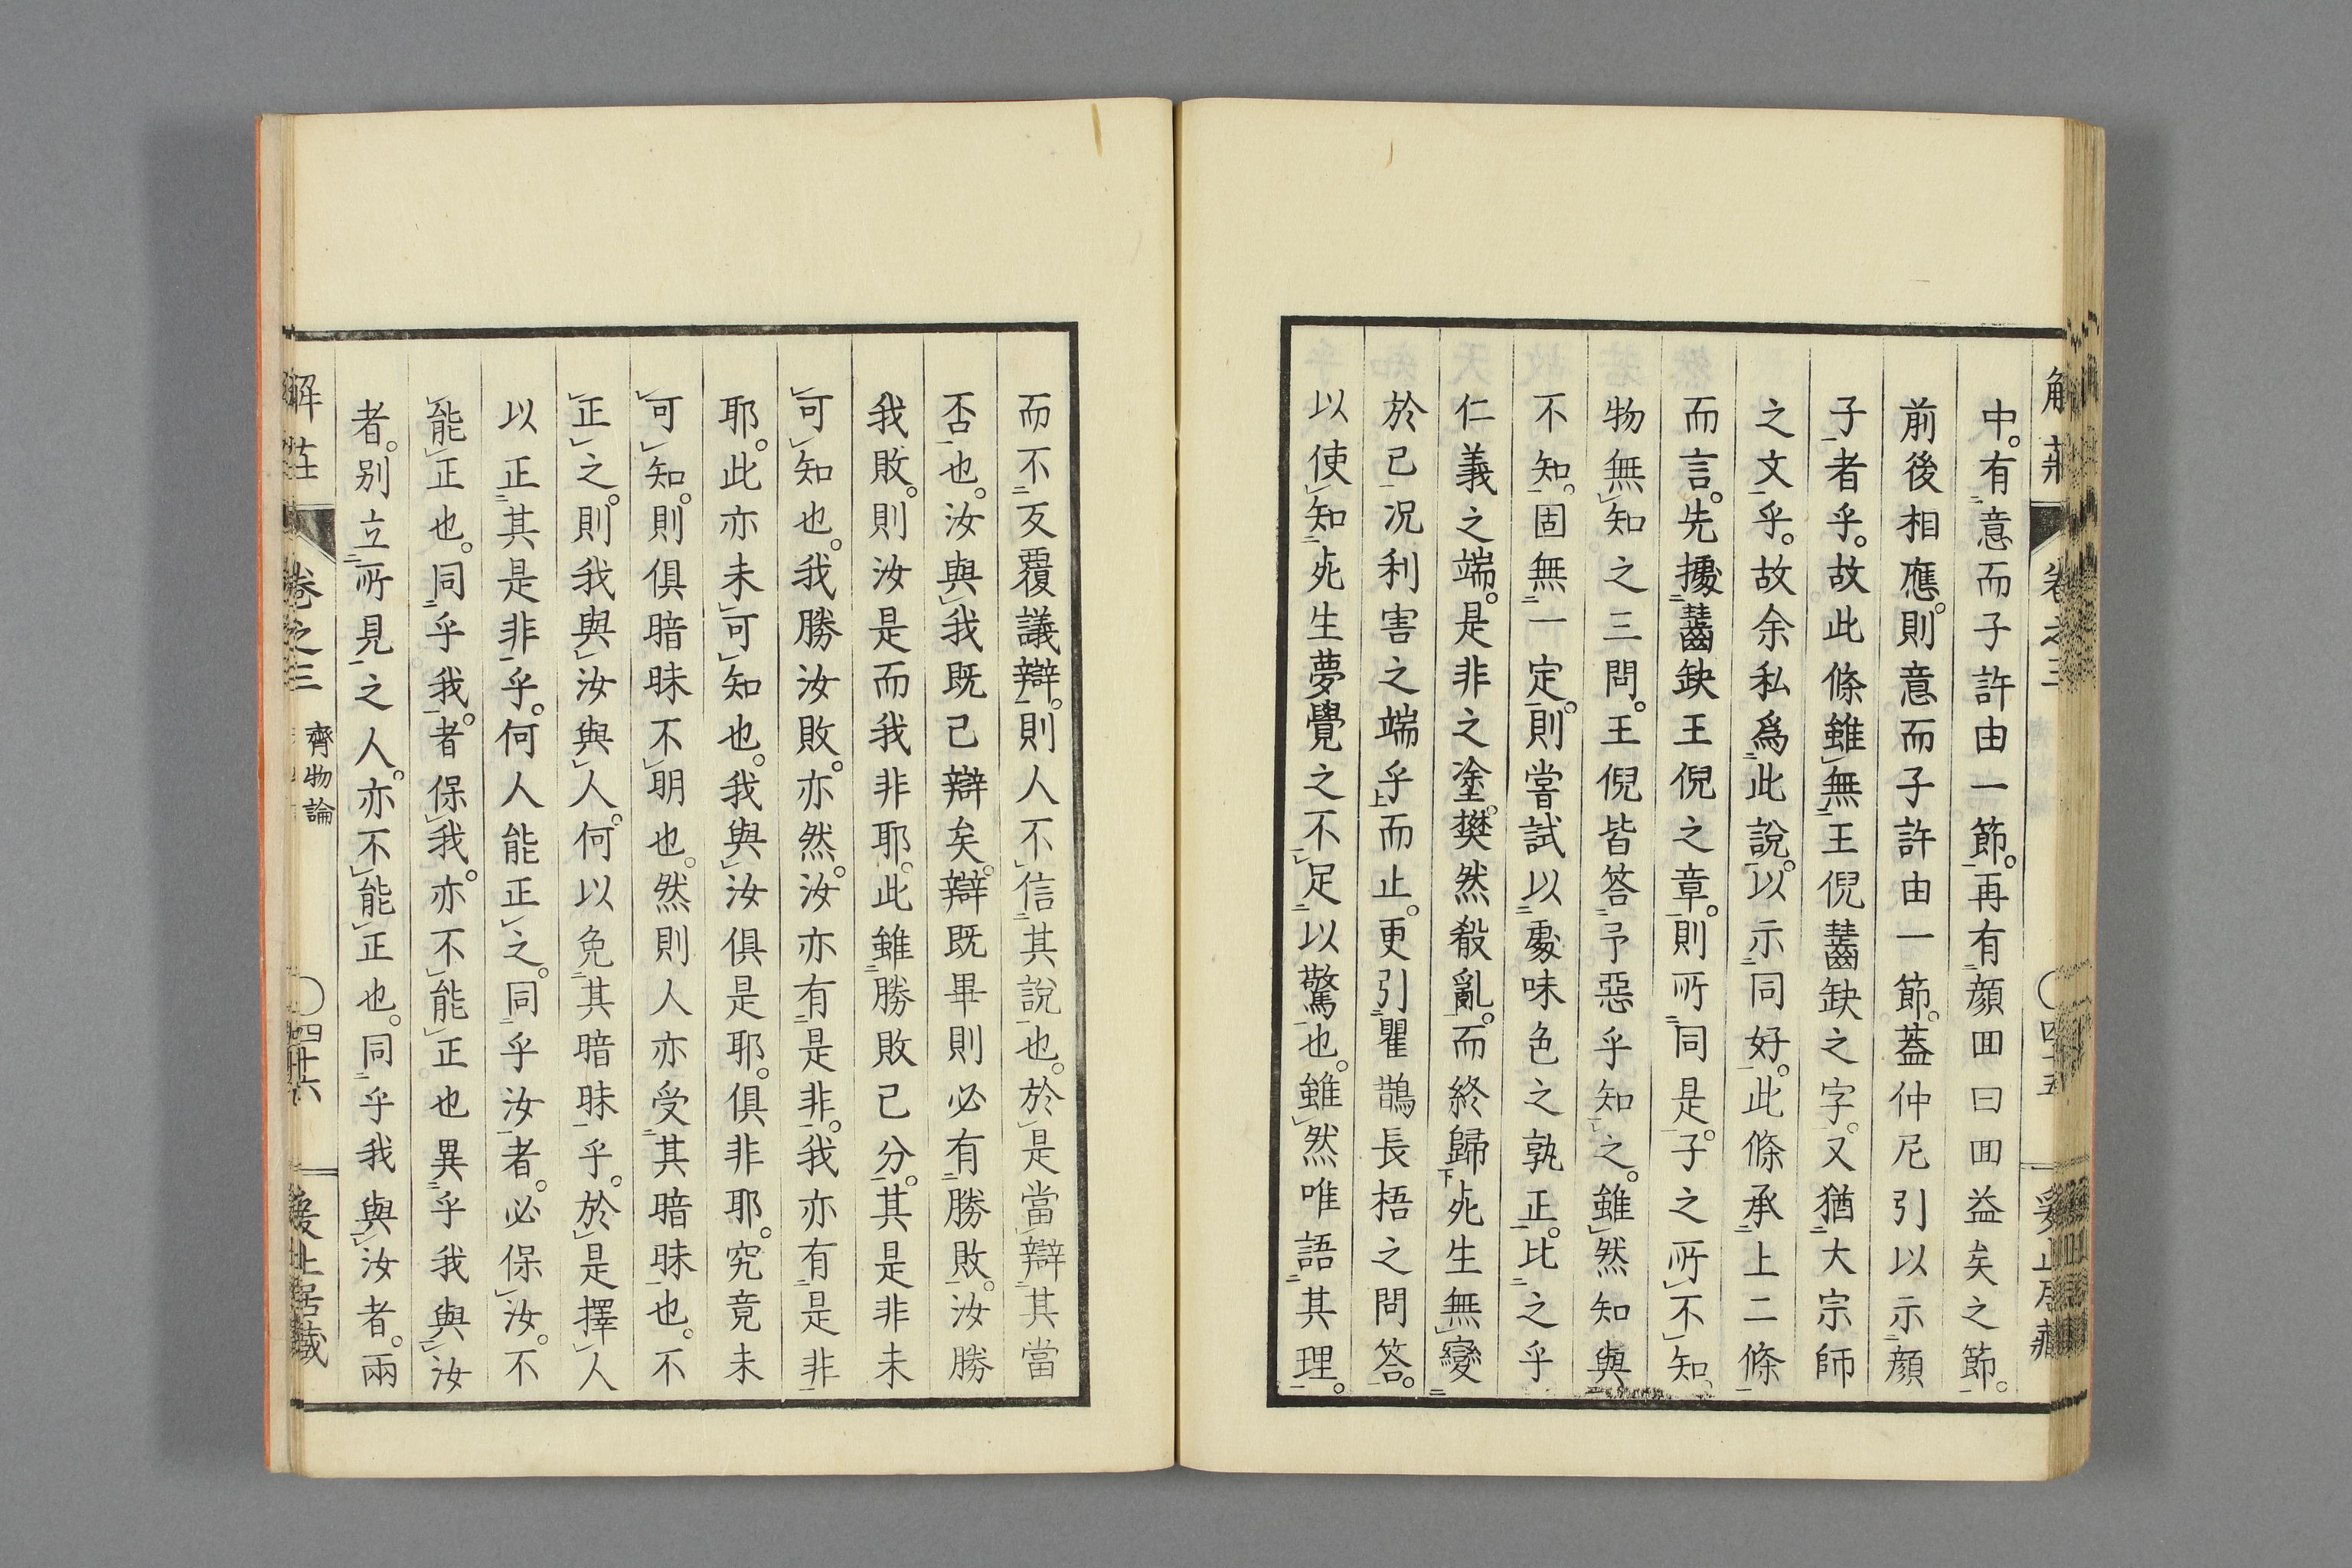 中。有意而子許由一節。再有顔回曰回益矣之節。
前後相應。則意而子許由一節。葢仲尼引以示顔
子者乎。故此條雖無王倪齧缺之字。又猶大宗師
之文乎。故余私爲此說。以示同好。此條承上二條
而言。先擾齧缺王倪之章。則所同是。子之所不知。
物無知之三問。王倪皆答予惡乎知之。雖然知與
不知。固無一定。則嘗試以處味色之孰正。比之乎
仁義之端。是非之塗。樊然殽亂。而終歸死生無變
於已况利害之端乎而止。更引瞿鵲長梧之問答。
以使知死生夢覺之不足以驚也。雖然唯語其理。
而不反覆議辯。則人不信其說也。於是當辯其當
否也。汝與我既已辯矣。辯既畢則必有勝敗。汝勝
我敗。則汝是而我非耶。此雖勝敗已分。其是非未
可知也。我勝汝敗。亦然。汝亦有是非。我亦有是非
耶。此亦未可知也。我與汝俱是耶。俱非耶。究竟未
可知。則俱暗昧不明也。然則人亦受其暗昧也。不
正之。則我與汝與人。何以免其暗昧乎。於是擇人
以正其是非乎。何人能正之。同乎汝者。必保汝。不
能正也。同乎我。者保我。亦不能正也異乎我與汝
者。别立所見之人。亦不能正也。同乎我與汝者。兩
解莊 卷之三 齊物論 〇四十六 爰止居藏